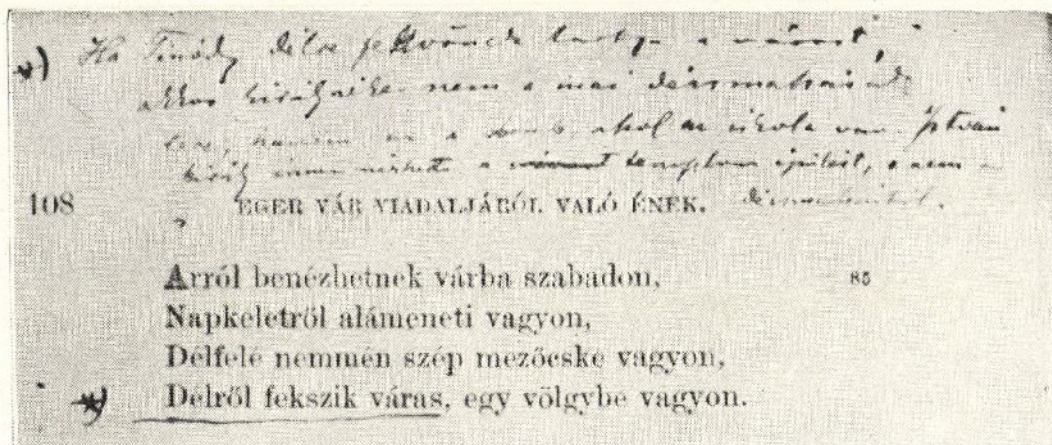 *) Ha Tinódy délre fekvőnek tartja a várost,
akkor nem a mai
ahol az iskola van. István
király innen nézhette a templom épülését, s nem a
108 EGER VÁR VIADALJÁRÓL VALÓ ÉNEK.
Arról benézhetnek várba szabadon, 85
Napkeletről alámeneti vagyon,
Délfelé nemmén szép mezőcske vagyon,
*) Délről fekszik váras, egy völgybe vagyon.